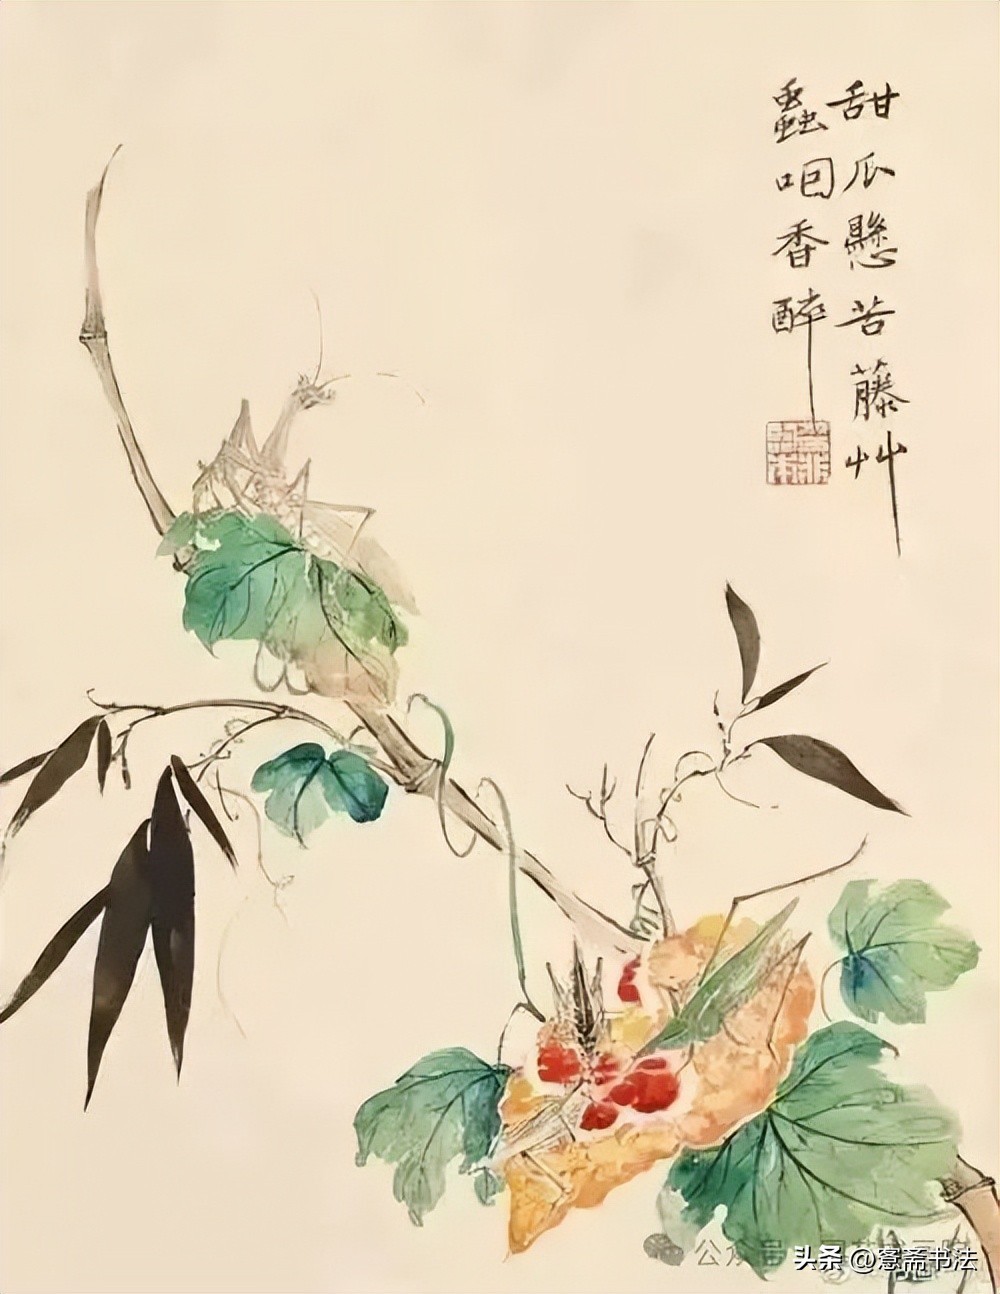 甜瓜懸苦藤艸
蟲咽香醉
公众号
头条 @窓斋书法